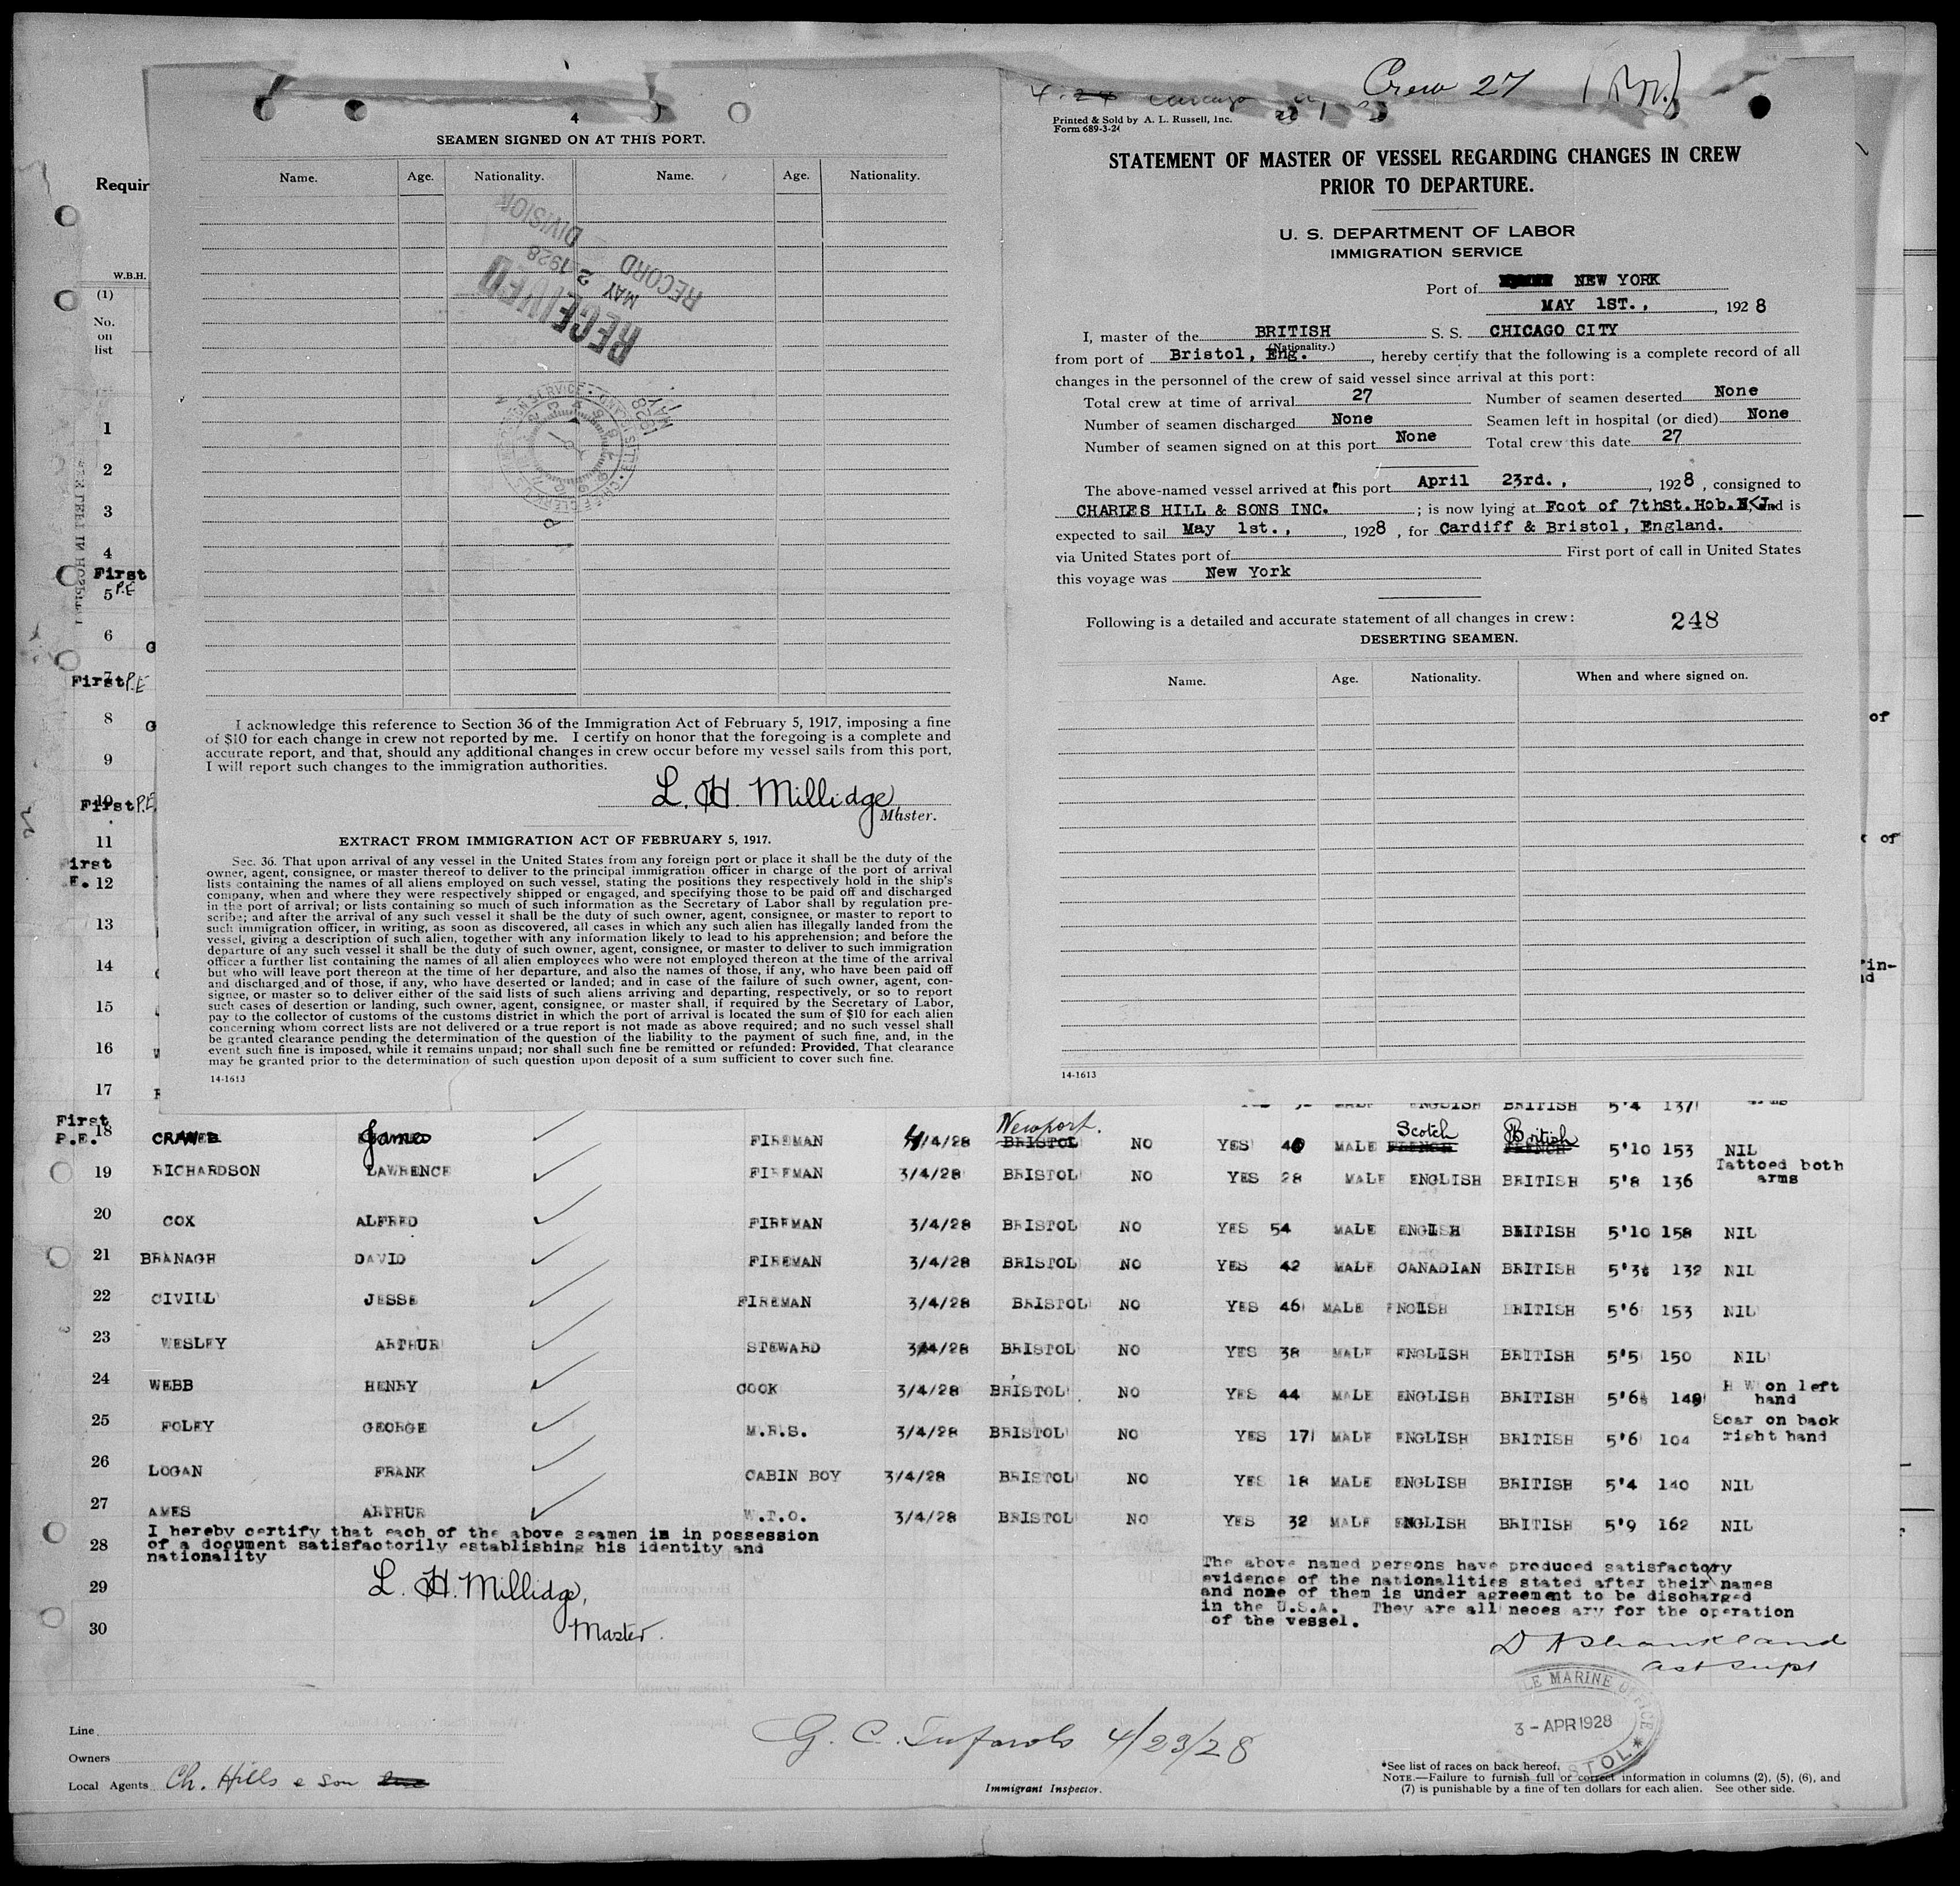 Crew 27
4
SEAMEN SIGNED ON AT THIS PORT.
Name. Age. Nationality. Name. Age. Nationality.
RECEIVED
MAY 2 1928
RECORD DIVISION
MAY 1 1928
I acknowledge this reference to Section 36 of the Immigration Act of February 5, 1917, imposing a fine
of $10 for each change in crew not reported by me. I certify on honor that the foregoing is a complete and
accurate report, and that, should any additional changes in crew occur before my vessel sails from this port,
I will report such changes to the immigration authorities.
L. H. Millidge,
Master.
EXTRACT FROM IMMIGRATION ACT OF FEBRUARY 5, 1917.
Sec. 36. That upon arrival of any vessel in the United States from any foreign port or place it shall be the duty of the
owner, agent, consignee, or master thereof to deliver to the principal immigration officer in charge of the port of arrival
lists containing the names of all aliens employed on such vessel, stating the positions they respectively hold in the ship's
company, when and where they were respectively shipped or engaged, and specifying those to be paid off and discharged
in the port of arrival; or lists containing so much of such information as the Secretary of Labor shall by regulation pre-
scribe; and after the arrival of any such vessel it shall be the duty of such owner, agent, consignee, or master to report to
such immigration officer, in writing, as soon as discovered, all cases in which any such alien has illegally landed from the
vessel, giving a description of such alien, together with any information likely to lead to his apprehension; and before the
departure of any such vessel it shall be the duty of such owner, agent, consignee, or master to deliver to such immigration
officer a further list containing the names of all alien employees who were not employed thereon at the time of the arrival
but who will leave port thereon at the time of her departure, and also the names of those, if any, who have been paid off
and discharged and of those, if any, who have deserted or landed; and in case of the failure of such owner, agent, con-
signee, or master so to deliver either of the said lists of such aliens arriving and departing, respectively, or so to report
such cases of desertion or landing, such owner, agent, consignee, or master shall, if required by the Secretary of Labor,
pay to the collector of customs of the customs district in which the port of arrival is located the sum of $10 for each alien
concerning whom correct lists are not delivered or a true report is not made as above required; and no such vessel shall
be granted clearance pending the determination of the question of the liability to the payment of such fine, and, in the
event such fine is imposed, while it remains unpaid; nor shall such fine be remitted or refunded: Provided, That clearance
may be granted prior to the determination of such question upon deposit of a sum sufficient to cover such fine.
14-1613
Printed & Sold by A. L. Russell, Inc.
Form 689-3-24
STATEMENT OF MASTER OF VESSEL REGARDING CHANGES IN CREW
PRIOR TO DEPARTURE.
U. S. DEPARTMENT OF LABOR
IMMIGRATION SERVICE
Port of NEW YORK
MAY 1ST., , 1928
I, master of the BRITISH S. S. CHICAGO CITY
(Nationality.)
from port of Bristol, Eng. , hereby certify that the following is a complete record of all
changes in the personnel of the crew of said vessel since arrival at this port:
Total crew at time of arrival 27 Number of seamen deserted None
Number of seamen discharged None Seamen left in hospital (or died) None
Number of seamen signed on at this port None Total crew this date 27
The above-named vessel arrived at this port April 23rd. , , 1928 , consigned to
CHARLES HILL & SONS INC. ; is now lying at Foot of 7thSt.Hob.N.J. and is
expected to sail May 1st., , 1928 , for Cardiff & Bristol, England.
via United States port of First port of call in United States
this voyage was New York
Following is a detailed and accurate statement of all changes in crew: 248
DESERTING SEAMEN.
Name. Age. Nationality. When and where signed on.
14-1613
Requir
W.B.H.
(1)
No.
on
list
1
2
3
4
First
5 P.E
6
7
First P.E
8
9
10
First P.E.
11
irst
E. 12
13
14
15
16
17 ENGLISH BRITISH 5'4 137
First
P.E. 18 James FIREMAN 4/4/28 BRISTOL Newport. NO YES 40 MALE FRENCH Scotch FRENCH British 5'10 153 NIL
19 RICHARDSON LAWRENCE FIREMAN 3/4/28 BRISTOL NO YES 28 MALE ENGLISH BRITISH 5'8 136 Tattoed both arms
20 COX ALFRED FIREMAN 3/4/28 BRISTOL NO YES 54 MALE ENGLISH BRITISH 5'10 158 NIL
21 BRANAGH DAVID FIREMAN 3/4/28 BRISTOL NO YES 42 MALE CANADIAN BRITISH 5'3½ 132 NIL
22 CIVILL JESSE FIREMAN 3/4/28 BRISTOL NO YES 46 MALE ENGLISH BRITISH 5'6 153 NIL
23 WESLEY ARTHUR STEWARD 3/4/28 BRISTOL NO YES 38 MALE ENGLISH BRITISH 5'5 150 NIL
24 WEBB HENRY COOK 3/4/28 BRISTOL NO YES 44 MALE ENGLISH BRITISH 5'6½ 149 H W on left hand
25 FOLEY GEORGE M.R.S. 3/4/28 BRISTOL NO YES 17 MALE ENGLISH BRITISH 5'6 104 Scar on back right hand
26 LOGAN FRANK CABIN BOY 3/4/28 BRISTOL NO YES 18 MALE ENGLISH BRITISH 5'4 140 NIL
27 AMES ARTHUR W.T.O. 3/4/28 BRISTOL NO YES 32 MALE ENGLISH BRITISH 5'9 162 NIL
I hereby certify that each of the above seamen is in possession
28 of a document satisfactorily establishing his identity and
nationality
29 L. H. Millidge,
30 Master.
The above named persons have produced satisfactory
evidence of the nationalities stated after their names
and none of them is under agreement to be discharged
in the U.S.A. They are all neces ary for the operation
of the vessel.
D A Shankland
Ast Supt
MARINE OFFICE
3 - APR 1928
Line
Owners
Local Agents Ch. Hills & Son
G. C. 4/23/28
Immigrant Inspector.
*See list of races on back hereof.
NOTE.—Failure to furnish full or correct information in columns (2), (5), (6), and
(7) is punishable by a fine of ten dollars for each alien. See other side.